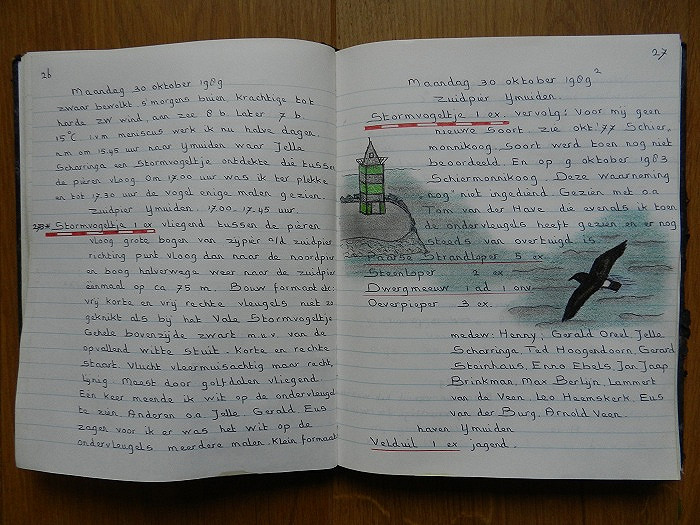 26
Maandag 30 oktober 1989
zwaar bewolkt s'morgens buien krachtige tot
harde zw wind, aan zee 8 b. later 7 b.
15°C i.v.m meniscus werk ik nu halve dagen.
n.m om 15.45 uur naar IJmuiden waar Jelle
Scharringa een Stormvogeltje ontdekte die tussen
de pieren vloog. Om 17.00 uur was ik ter plekke
en tot 17.30 uur de vogel enige malen gezien.
Zuidpier IJmuiden. 17.00 - 17.45 uur.
Stormvogeltje 1 ex vliegend tussen de pieren
vloog grote bogen van zypier o/d zuidpier
richting punt vloog dan naar de noordpier
en boog halverwege weer naar de zuidpier
eenmaal op ca 75 m. Bouw formaat etc:
vrij korte en vrij rechte vleugels niet zo
geknikt als bij het Vale Stormvogeltje
Gehele bovenzijde zwart m.u.v. van de
opvallend witte stuit. Korte en rechte
staart. Vlucht vleermuisachtig maar recht
lijnig Meest door golfdalen vliegend.
Een keer meende ik wit op de ondervleugel
te zien Anderen o.a Jelle. Gerald Eus
zagen voor ik er was het wit op de
ondervleugels meerdere malen. Klein formaat
27
Maandag 30 oktober 1989 2
Zuidpier IJmuiden.
Stormvogeltje 1 ex. vervolg: Voor mij geen
nieuwe soort zie okt '77 Schier,
monnikoog. Soort werd toen nog niet
beoordeeld. En op 9 oktober 1983
Schiermonnikoog. Deze waarneming
nog niet ingediend Gezien met o.a
Tom van der Have die evenals ik toen
de ondervleugels heeft gezien en er nog
steeds van overtuigd is
Paarse Strandloper 5 ex.
Steenloper 2 ex.
Dwergmeeuw 1 ad 1 onv.
Oeverpieper 3 ex.
medew: Henny, Gerald Oreel, Jelle
Scharringa, Ted Hoogendoorn, Gerard
Steinhaus, Enno Ebels, Jan Jaap
Brinkman, Max Berlijn, Lammert
van de Veen. Leo Heemskerk, Eus
van der Burg, Arnold Veen.
haven IJmuiden
Velduil 1 ex jagend.